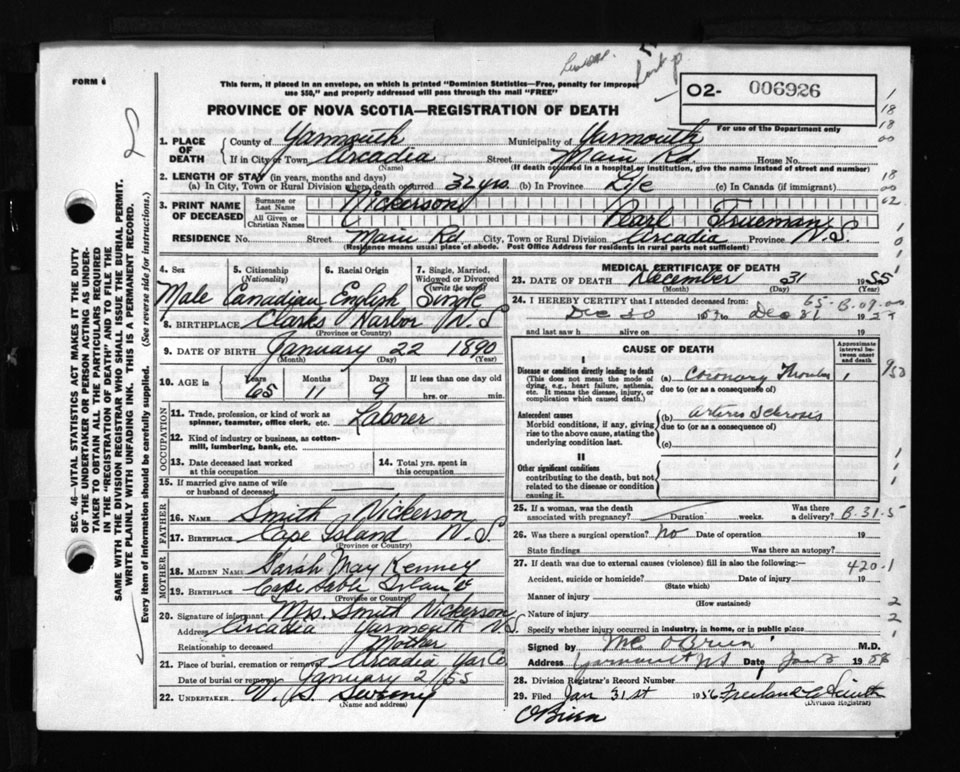 FORM 4
This form, if placed in an envelope, on which is printed "Dominion Statistics—Free, penalty for improper
use $50," and properly addressed will pass through the mail "FREE"
O2- 006926
PROVINCE OF NOVA SCOTIA—REGISTRATION OF DEATH
For use of the Department only
1. PLACE OF DEATH County of Yarmouth Municipality of Yarmouth
If in City or Town Arcadia (Name) Street Main Rd. House No.
(If death occurred in a hospital or institution, give the name instead of street and number)
2. LENGTH OF STAY (in years, months and days)
(a) In City, Town or Rural Division where death occurred 32 yrs. (b) In Province Life (c) In Canada (if immigrant)
3. PRINT NAME OF DECEASED Surname or Last Name Nickerson
All Given or Christian Names Pearl Trueman
RESIDENCE No. Street Main Rd. City, Town or Rural Division Arcadia Province N.S.
(Residence means usual place of abode. Post Office Address for residents in rural parts not sufficient)
4. Sex Male
5. Citizenship (Nationality) Canadian
6. Racial Origin English
7. Single, Married, Widowed or Divorced (write the word) Single
8. BIRTHPLACE Clarks Harbor N.S
(Province or Country)
9. DATE OF BIRTH January 22 1890
(Month) (Day) (Year)
10. AGE in Years 65 Months 11 Days 9 If less than one day old hrs. or min.
OCCUPATION
11. Trade, profession, or kind of work as spinner, teamster, office clerk, etc. Laborer
12. Kind of industry or business, as cotton-mill, lumbering, bank, etc.
13. Date deceased last worked at this occupation
14. Total yrs. spent in this occupation
15. If married give name of wife or husband of deceased
FATHER
16. NAME Smith Nickerson
17. BIRTHPLACE Cape Island N.S.
(Province or Country)
MOTHER
18. MAIDEN NAME Sarah May Kenney
19. BIRTHPLACE Cape Sable Island
(Province or Country)
20. Signature of informant Mrs. Smith Nickerson
Address Arcadia Yarmouth N.S.
Relationship to deceased Mother
21. Place of burial, cremation or removal Arcadia Yar Co
Date of burial or removal January 2/55
22. UNDERTAKER Sweeny
(Name and address)
MEDICAL CERTIFICATE OF DEATH
23. DATE OF DEATH December 31 1955
(Month) (Day) (Year)
24. I HEREBY CERTIFY that I attended deceased from: 65-B-09-00
Dec 30 Dec 31 19
and last saw h alive on 19
CAUSE OF DEATH
Approximate interval between onset and death
I
Disease or condition directly leading to death
(This does not mean the mode of dying, e.g., heart failure, asthenia, etc. It means the disease, injury, or complication which caused death.)
(a) Coronary
due to (or as a consequence of)
Antecedent causes
Morbid conditions, if any, giving rise to the above cause, stating the underlying condition last.
(b) Arterio Sclerosis
due to (or as a consequence of)
(c)
II
Other significant conditions
contributing to the death, but not related to the disease or condition causing it.
25. If a woman, was the death associated with pregnancy? Duration weeks. Was there a delivery? B-31-5
26. Was there a surgical operation? No Date of operation 19
State findings Was there an autopsy?
27. If death was due to external causes (violence) fill in also the following:- 420-1
Accident, suicide or homicide? (State which) Date of injury 19
Manner of injury (How sustained)
Nature of injury
Specify whether injury occurred in industry, in home, or in public place
Signed by O'Brien M.D.
Address Yarmouth NS Date Jan 3 1956
28. Division Registrar's Record Number
29. Filed Jan 31st 1956 Freeland Smith
(Division Registrar)
O'Brien
SEC. 46—VITAL STATISTICS ACT MAKES IT THE DUTY
OF THE UNDERTAKER OR PERSON ACTING AS UNDER-
TAKER TO OBTAIN ALL THE PARTICULARS REQUIRED
IN THE "REGISTRATION OF DEATH" AND TO FILE THE
SAME WITH THE DIVISION REGISTRAR WHO SHALL ISSUE THE BURIAL PERMIT.
WRITE PLAINLY WITH UNFADING INK. THIS IS A PERMANENT RECORD.
Every item of information should be carefully supplied. (See reverse side for instructions.)